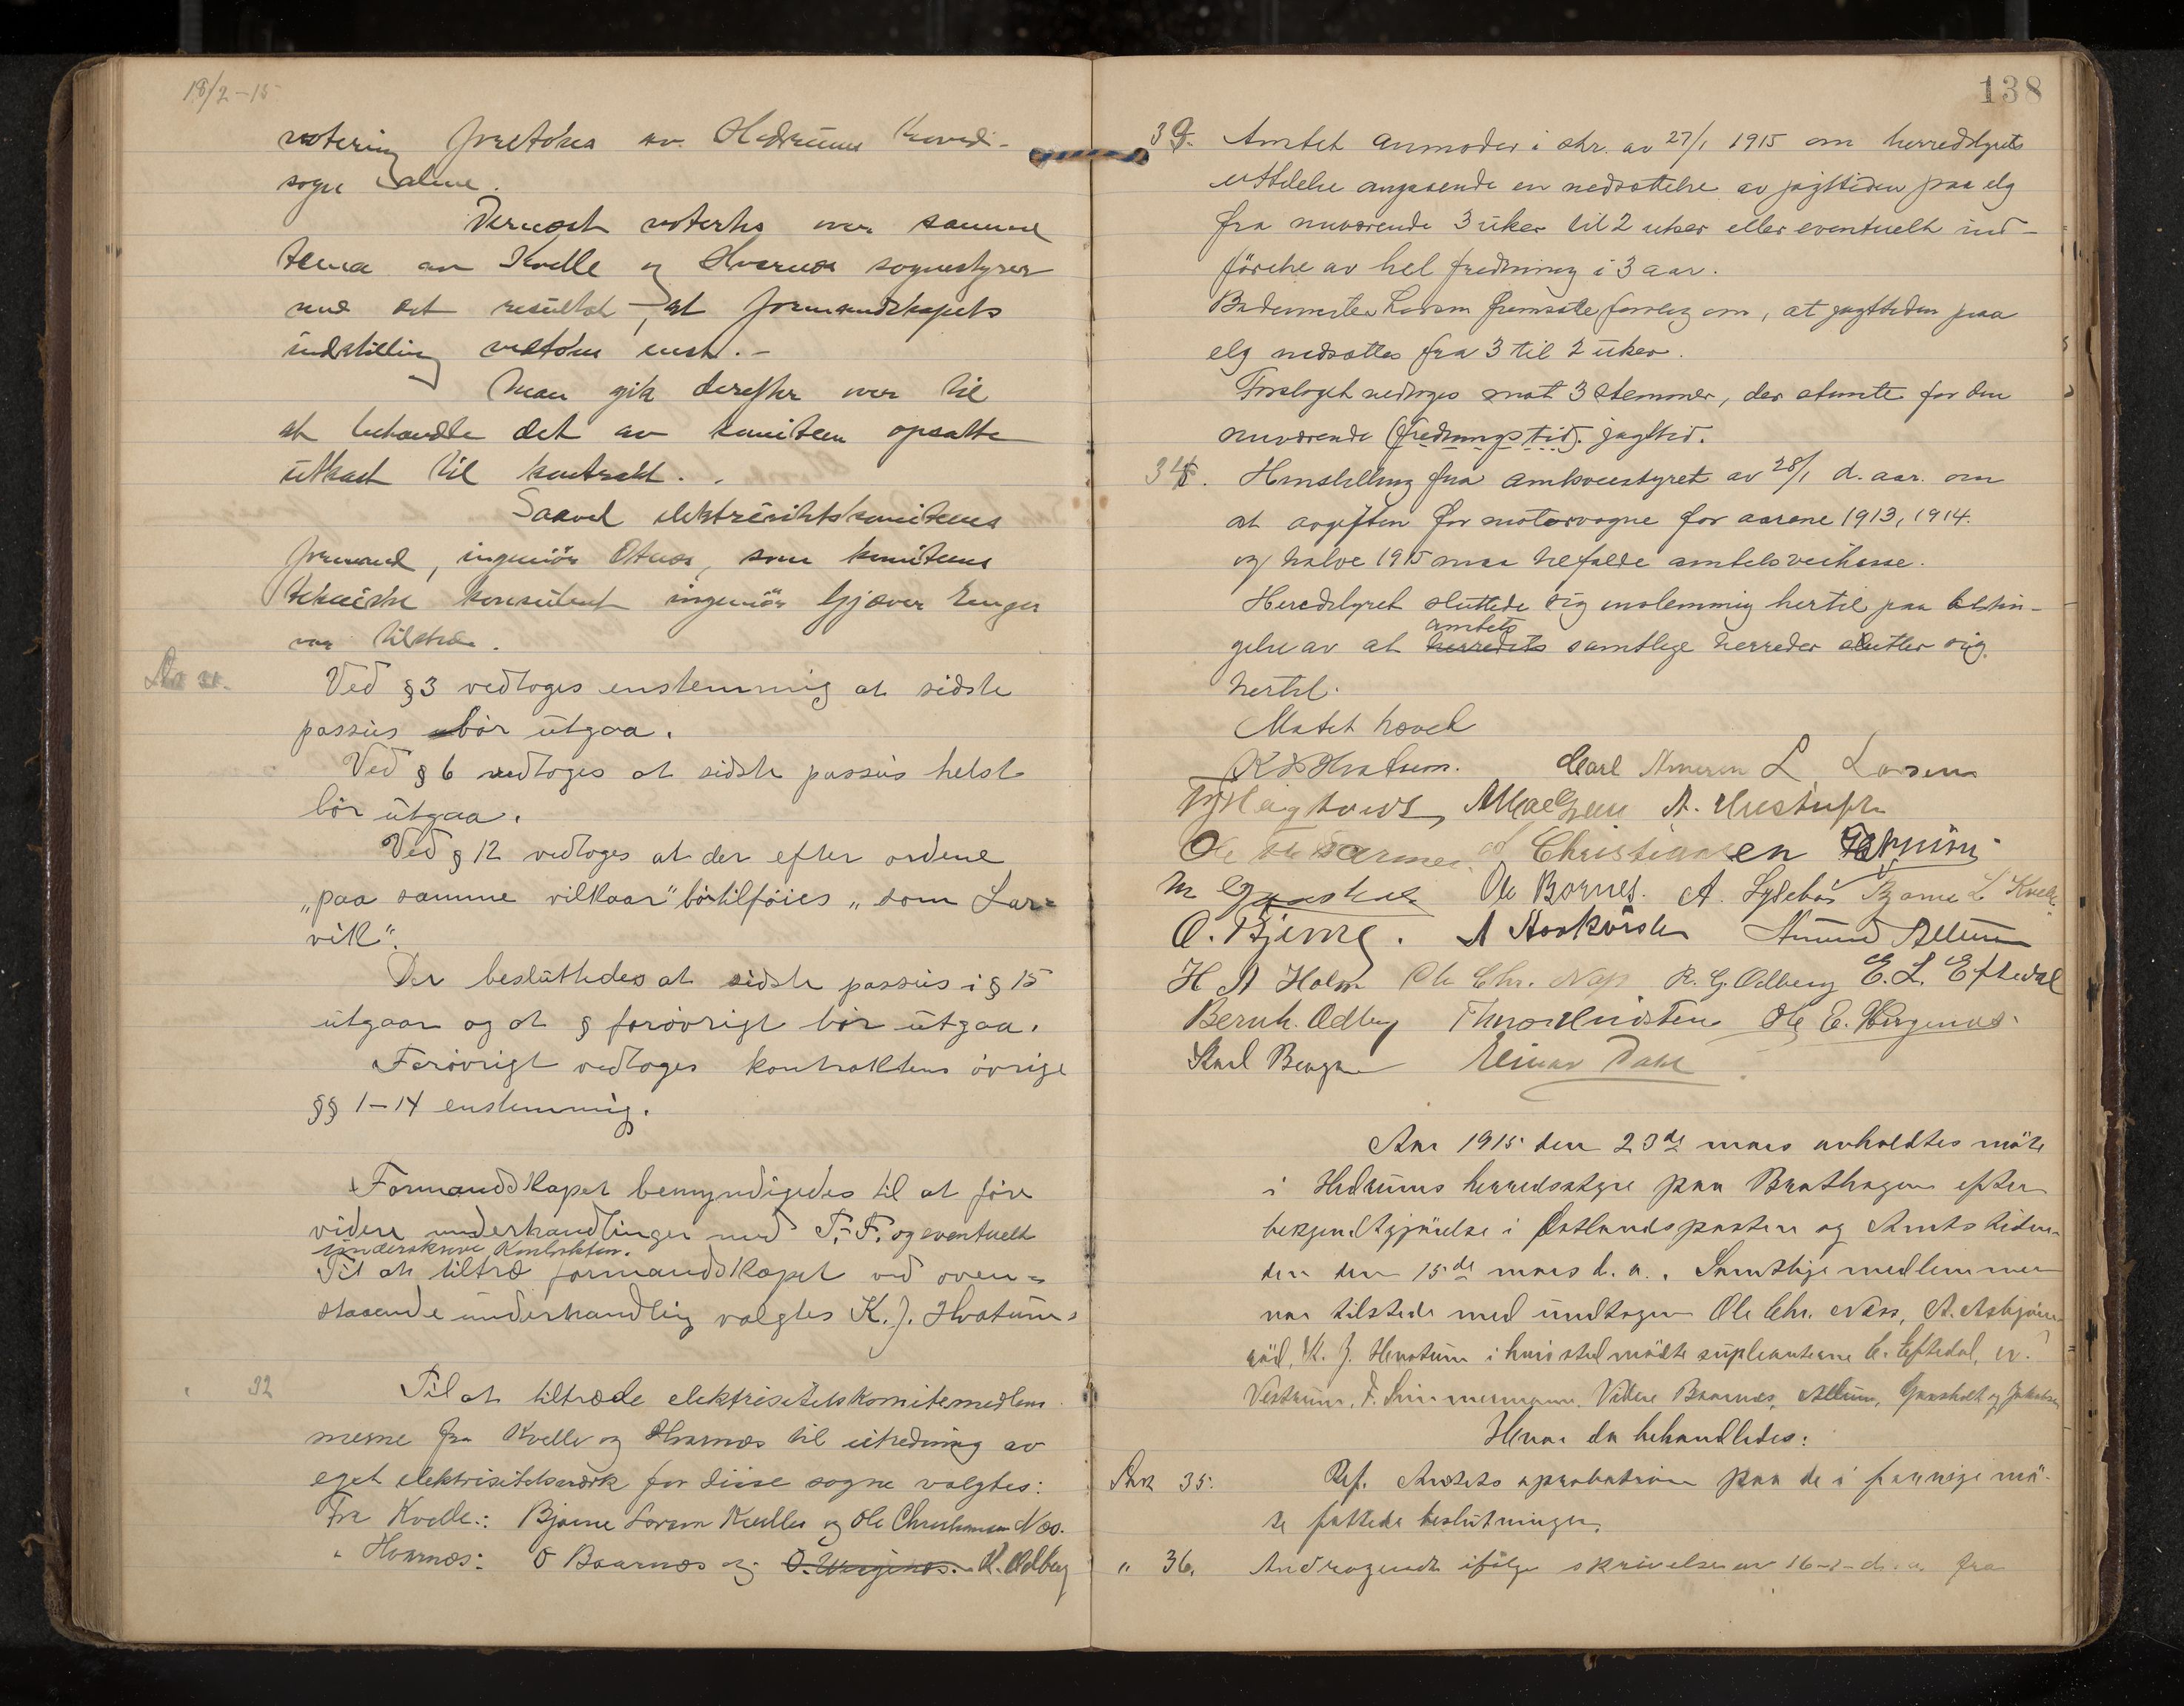 18/2-15
votering foretokes av Hedrums hoved-
sogn alene.
Dernæst votertes over samme
tema av Kvelle og Hvarnes sognestyrer
med det resultat, at formandskapets
indstilling vedtokes enst.-
Man gik derefter over til
at behandle det av komiteen opsatte
utkast til kontrakt.
Saavel elektricitetskomiteens
formand, ingeniör Otnes, som komiteens
tekniske konsulent ingeniör Gjæver Enger
var tilstede.
Ved §3 vedtoges enstemmig at sidste
passus bör utgaa.
Ved §6 vedtoges at sidste passus helst
bör utgaa.
Ved §12 vedtoges at der efter ordene
„paa samme vilkaar" bör tilföies „som Lar=
vik".
Der besluttedes at sidste passus i §15
utgaar og at § forøvrigt bör utgaa.
Forøvrigt vedtoges kontraktens övrige
§§ 1-14 enstemmig.
Formandskapet bemyndigedes til at före
videre underhandlinger med T.-F. og eventuelt
underskrive kontrakten.
Til at tiltræ formandskapet ved oven=
staaende underhandling valgtes K. J. Hvatum.
32
Til at tiltræde elektrisitetskomitemedlem
merne fra Kvelle og Hvarnes til utredning av
eget elektrisitetsværk for disse sogne valgtes:
Fra Kvelle: Bjarne Larsen Kvelle og Ole Christiansen Næs.
" Hvarnes: O Baarnes og O. Urgjenes. R. Odberg
138
33. Amtet anmoder i skr. av 27/1 1915 om herredstyrets
uttalelse angaaende en nedsættelse av jagttiden paa elg
fra nuværende 3 uker til 2 uker eller eventuelt ind-
förelse av hel fredning i 3 aar.
Bademester Larsen fremsatte forslag om, at jagttiden paa
elg nedsættes fra 3 til 2 uker.
Forslaget vedtoges mot 3 stemmer, der stemte for den
nuværende (fredningstid). jagttid.
34. Henstilling fra amtsveistyret av 28/1 d. aar. om
at avgiften for motorvogne for aarene 1913, 1914.
og halve 1915 maa tilfalde amtets veikasse.
Herredstyret sluttede sig enstemmig hertil paa betin-
amtets
gelse av at herredets samtlige herreder slutter sig
hertil.
Mötet hævet
K J Hvatum. Carl Amersen L. Larsen
Ole
Christiansen
M Gjønholt Ole Bornes. A. Lysebö Bjarne L. Kvelle
O. Bjerne. A Amund Allum
H A Holm Ole Chr. Næs R. G. Odberg E. L. Eftedal
Bernh. Odberg Ole E.
Karl Bergan Einar Dahl
Aar 1915 den 23de mars avholdtes möte
i Hedrums herredsstyre paa Brathagen efter
bekjendtgjörelse i Østlandsposten og Amtstiden-
den den 15de mars d. a. Samtlige medlemmer
var tilstede med undtagen Ole Chr. Næss, A. Asbjörn
röd, K. J. Hvatum i hvis sted mödte supleanterne E. Eftedal,
Vestrum, F. Simmermann. Videre Baarnes, Allum, Gjønholt og Jakobsen
Hvor da behandledes:
Sak 35. Ref. Amtets aprobation paa de i forrige mö-
te fattede beslutninger.
" 36. Andragende ifölge skrivelse av 16-2-d. a. fra